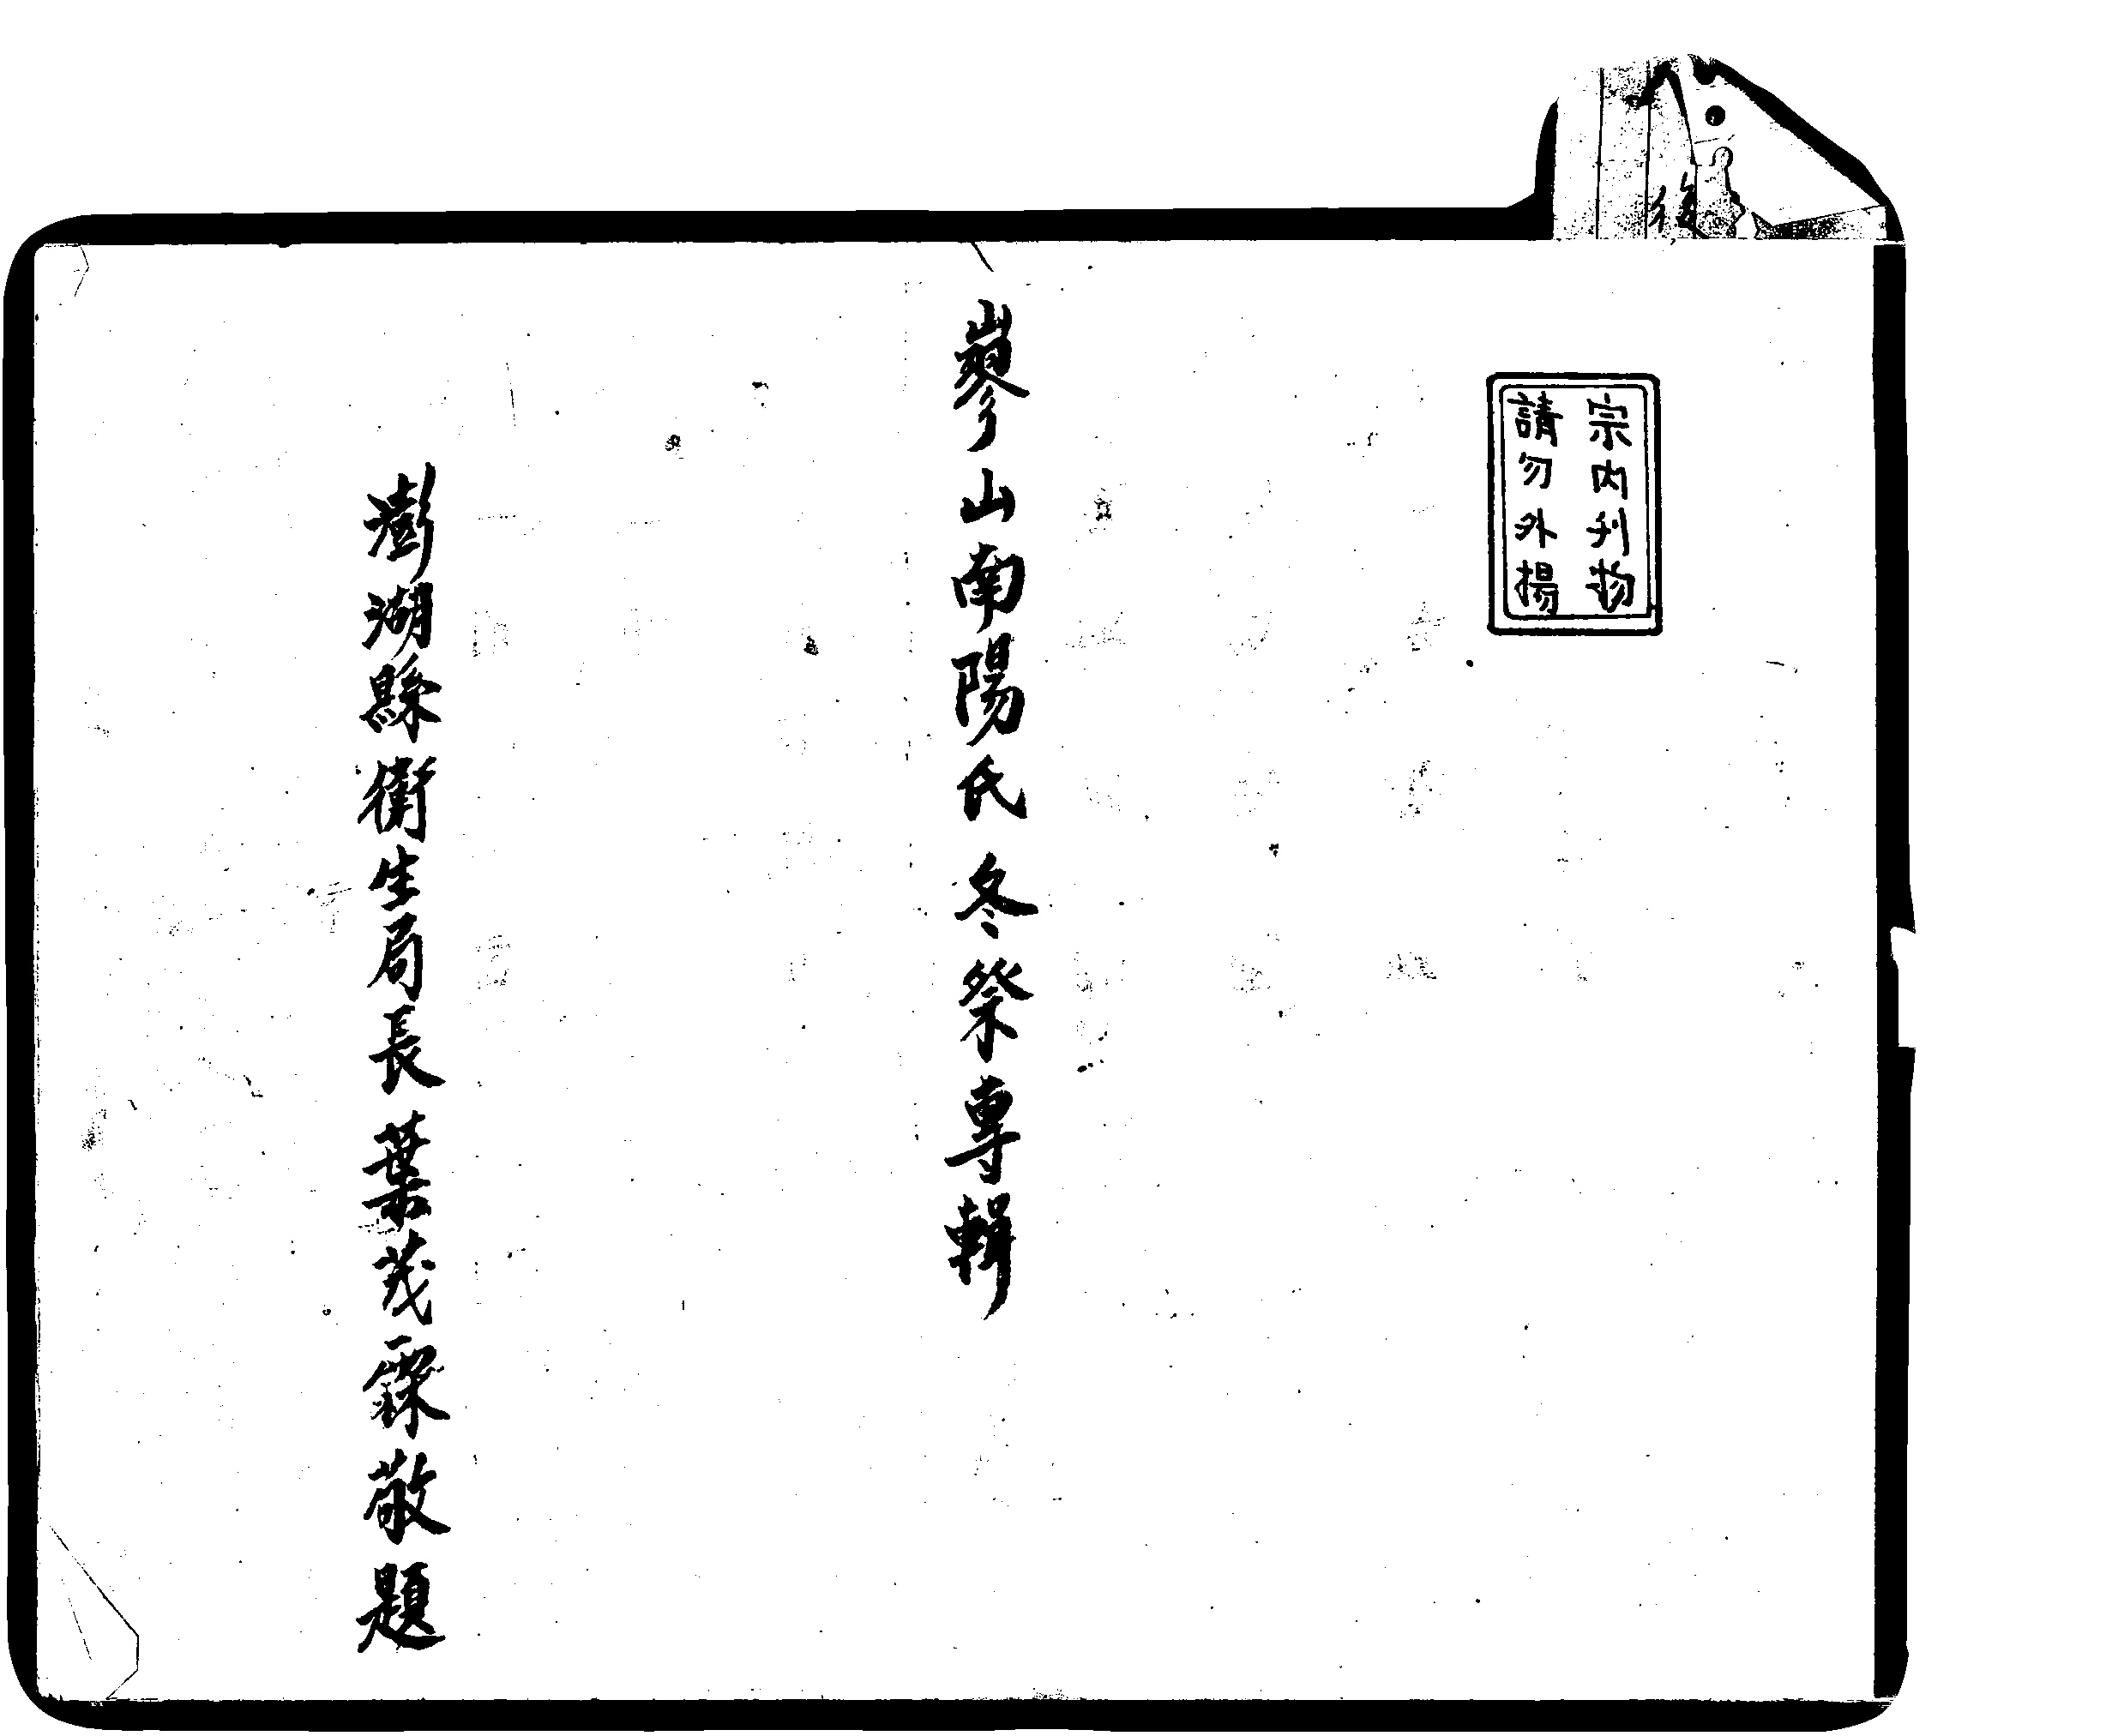 宗內刋物
請勿外揚
嵺山南陽氏冬祭專輯
澎湖縣衛生局長葉茂霖敬題